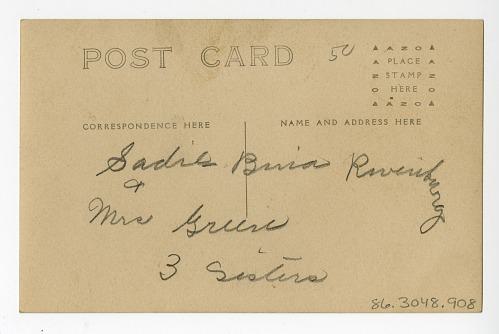 POST CARD
50
AZO
PLACE
STAMP
HERE
AZO
CORRESPONDENCE HERE
NAME AND ADDRESS HERE
Sadie Rivenburg
&
Mrs Greene
3 Sisters
86.3048.908